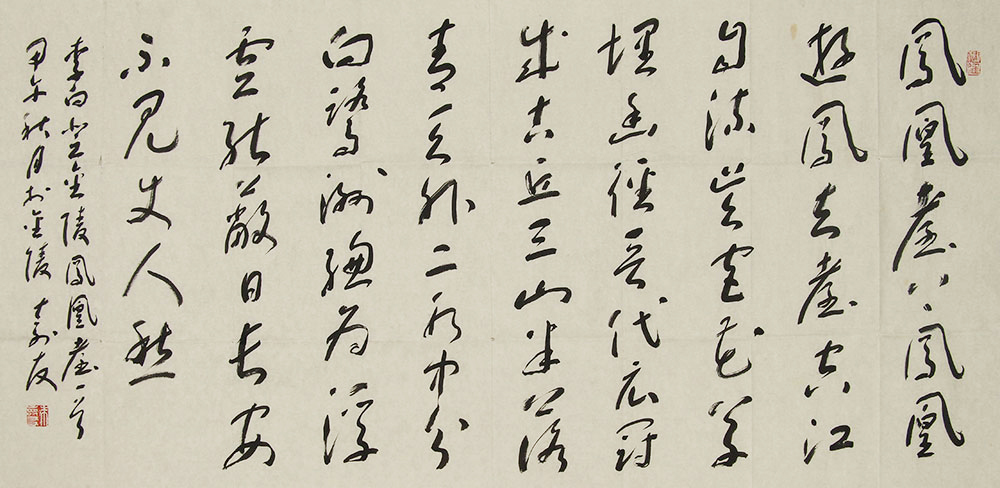 鳳凰臺上鳳凰
遊鳳去臺空江
自流吳宮花草
埋幽徑晉代衣冠
成古丘三山半落
青天外二水中分
白鷺洲總為浮
雲能蔽日長安
不見使人愁
李白登金陵鳳凰臺一首
甲午秋月於金陵